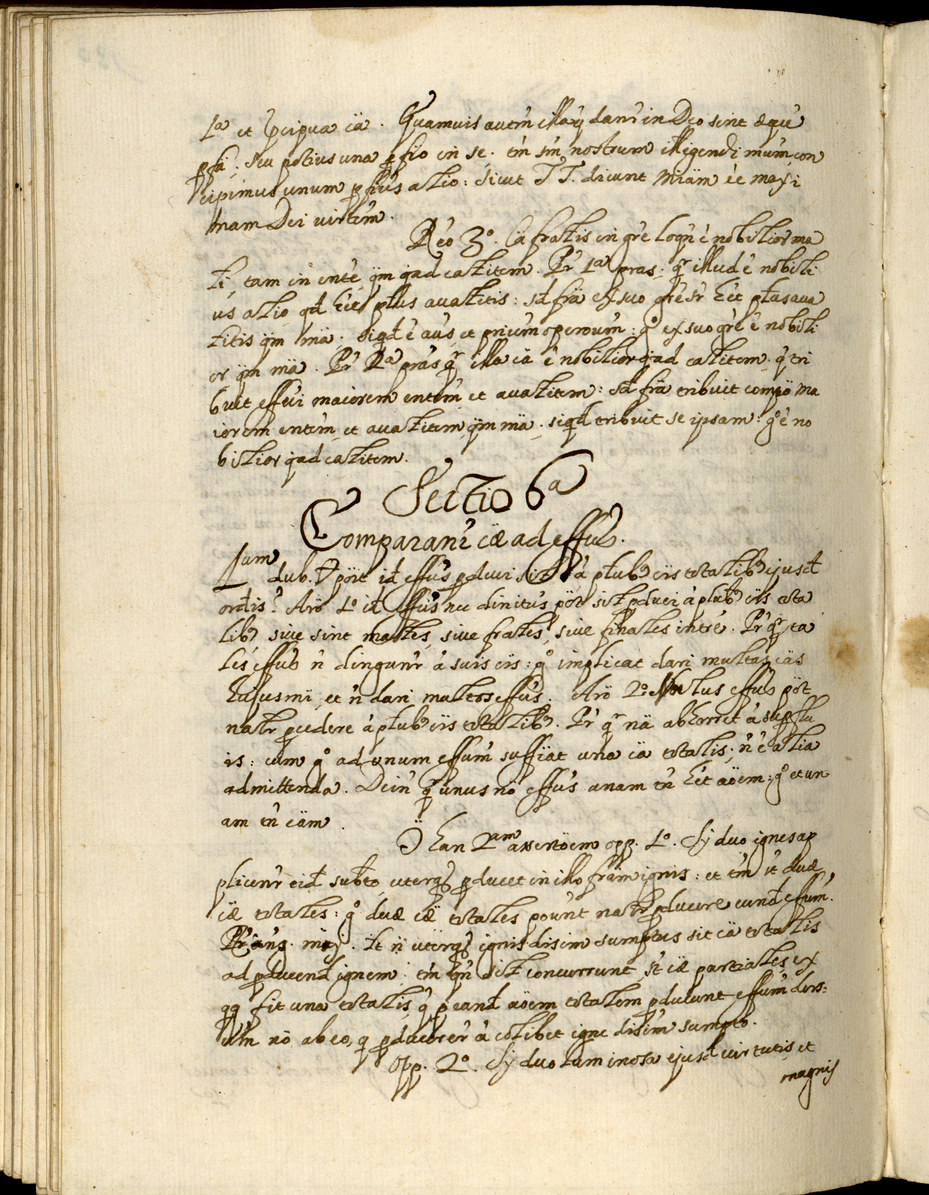 1a et p̄cipua c̄a. Quamuis autem illa q̄ dant̄ in Deo sint æqu
pf̄a, seu potius una p̄fio in se. tn̄ sm̄ nostrum illigendi mūm con
cipimus unum p̄fius alio: sicut TT. dicunt Miām ēe maxi
mam Dei virtem.
Rēo 3o. Cā fralis in gr̄e loqn̄ ē nobilior ma
li, tam in ente qm̄ qad calitem. Pr̄ 1a pras: qr̄ illud ē nobili
us alio qd̄ h̄et plus avalitis: sd̄ frā ex suo gr̄e sr̄ h̄et plus ava
litis qm̄ mā. siqd̄ ē aūs, et prium operoum: go ex suo gr̄e ē nobili
or qm̄ mā. Pr̄ 2a pras qr̄ illa cā ē nobilior qad calitem, q̄ tri
buit effui maiorem entem et avalitem: sd̄ frā tribuit compo ma
iorem entem, et avalitem, qm̄ mā. siqd̄ tribuit se ipsam: go ē no
bilior qad calitem.
Sectio 6a
Comparani cæ ad effus.
1um dub. V̄ pōit id̄ effus p̄duci sil̄ à plub̄ cīs totalib̄ ejusd̄
ordis? Arō 1o id̄ effus nec dinitus pōt sil̄ p̄duci à plub̄ cīs tota
lib̄ sive sint mālles, sive frales, sive finales intrē. Pr̄ qr̄ ta
les effus n̄ dingunr̄ à suis cīs: go implicat dari multas cās
hujusmi, et n̄ dari multos effus. Arō 2o Nullus effus pōt
natr̄ p̄cedere à plub̄ cīs totalib̄. Pr̄ qr̄ nā abhorret à supflu
is: cum go ad unum effum suffiat una cā totalis; n̄ ē alia
admittenda. Dein qr̄ unus nō effus unam tn̄ h̄et aōem; go et un
am tn̄ cām.
Ō han 2am assertōem opp. 1o. Si duo ignes ap
plicenr̄ eid̄ subto, uterq̄ p̄ducet in illo frām ignis: et tm̄ st̄ duæ
cæ totales: go duæ cæ totales pount natr̄ p̄ducere eund̄ effum.
Pr̄ ans. mi. Lt n̄ uterq̄ ignis disim sumptus sit cā totalis
ad p̄ducend̄ ignem: tm̄ qn̄ sil̄ concurrunt, st̄ cæ partiales, ex
qq̄ fit una totalis, q̄ p̄ eand̄ aōem totalem p̄dulunt effum dirs:
um nō ab eo, q̄ p̄ducerer̄ à colibet igne disim sumpto.
Opp. 2o. Si duo luminosa ejusd̄ virtutis, et
magnis